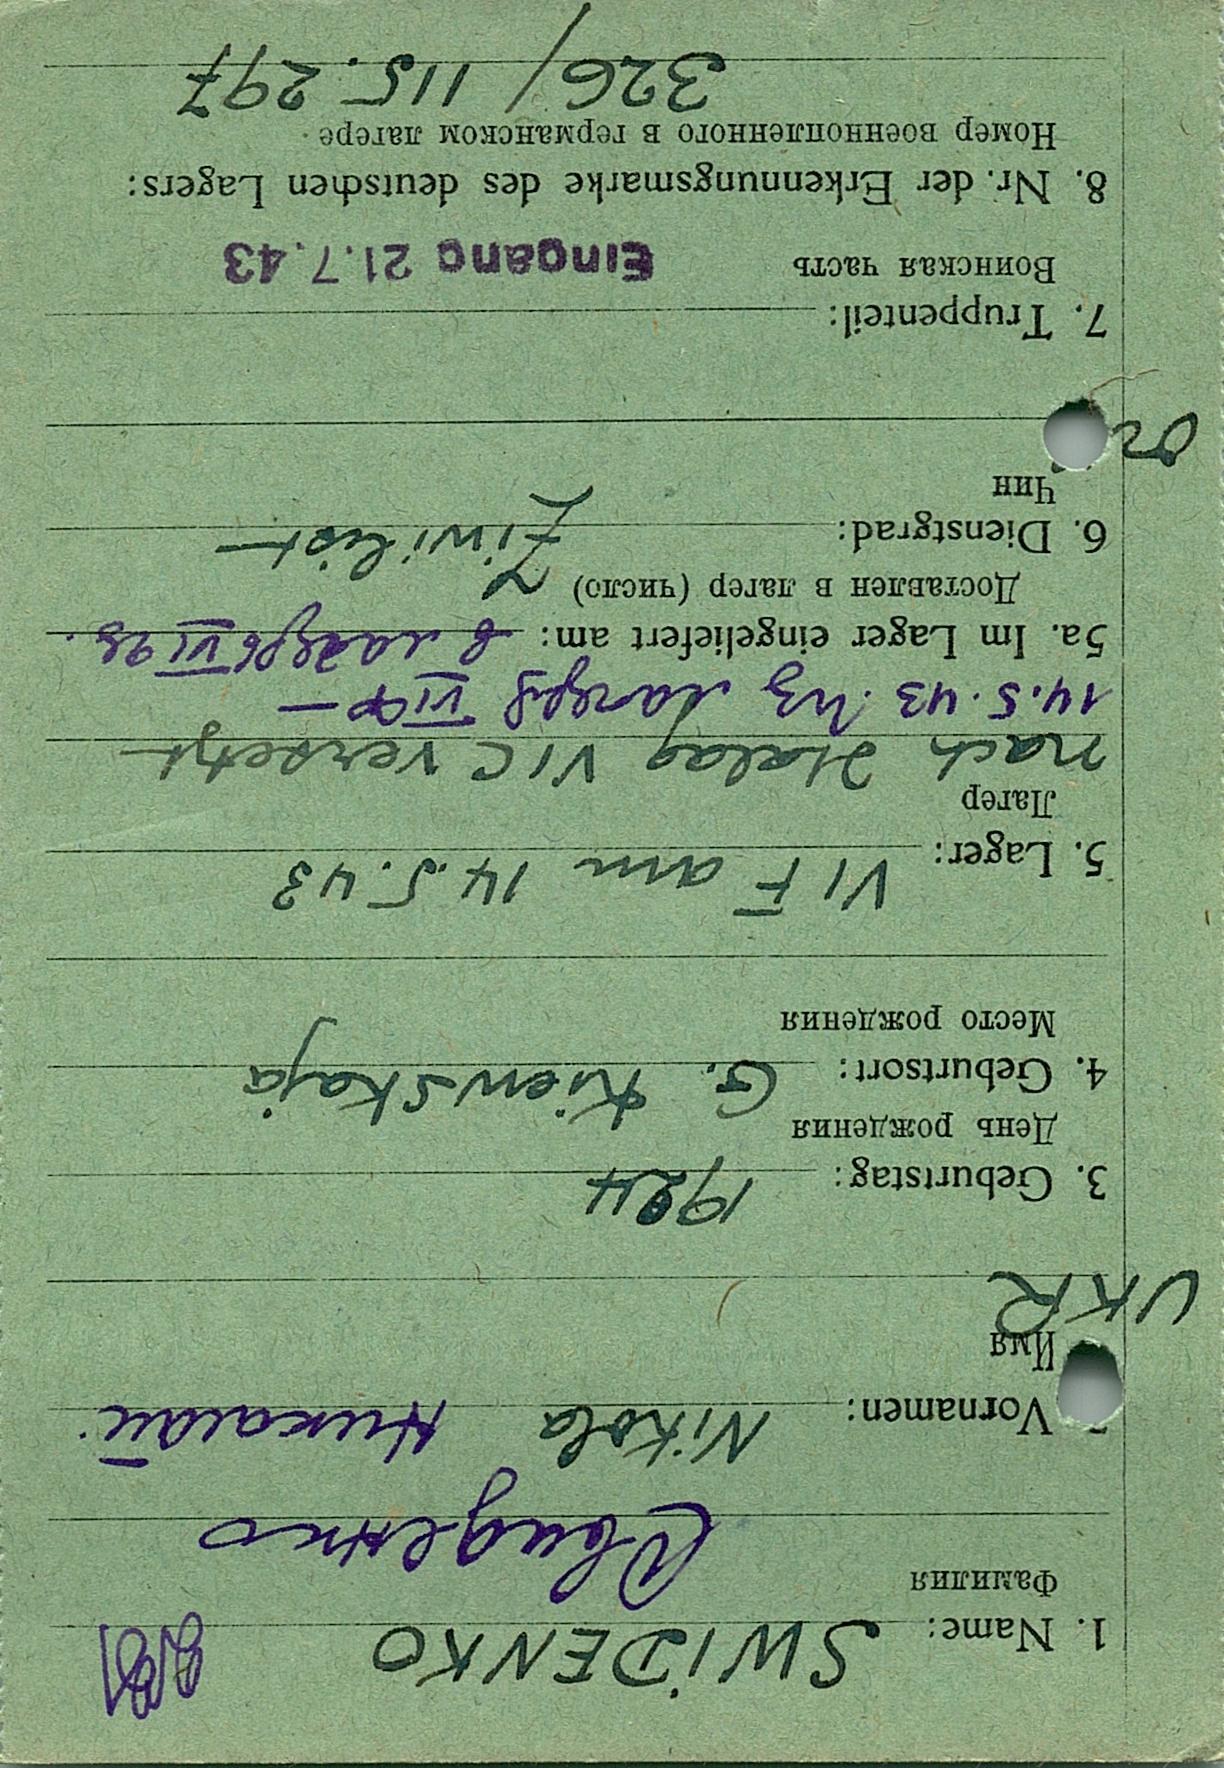 1. Name: SWIDENKO
Фамилия
Свиденко
Vornamen: Nikola Николай.
Имя
UKR
3. Geburtstag: 1924
День рождения
4. Geburtsort: G. Kiewskaja
Место рождения
5. Lager: VI F am 14.5.43
Лагерь
nach Stalag VI C versetzt
14.5.43. Из лагеря VI Ф —
5a. Im Lager eingeliefert am: в лагерь VI
Доставлен в лагерь (число)
6. Dienstgrad: Ziwilist
Чин
7. Truppenteil:
Воинская часть Eingang 21.7.43
8. Nr. der Erkennungsmarke des deutschen Lagers:
Номер военнопленного в германском лагере
326/ 115.297